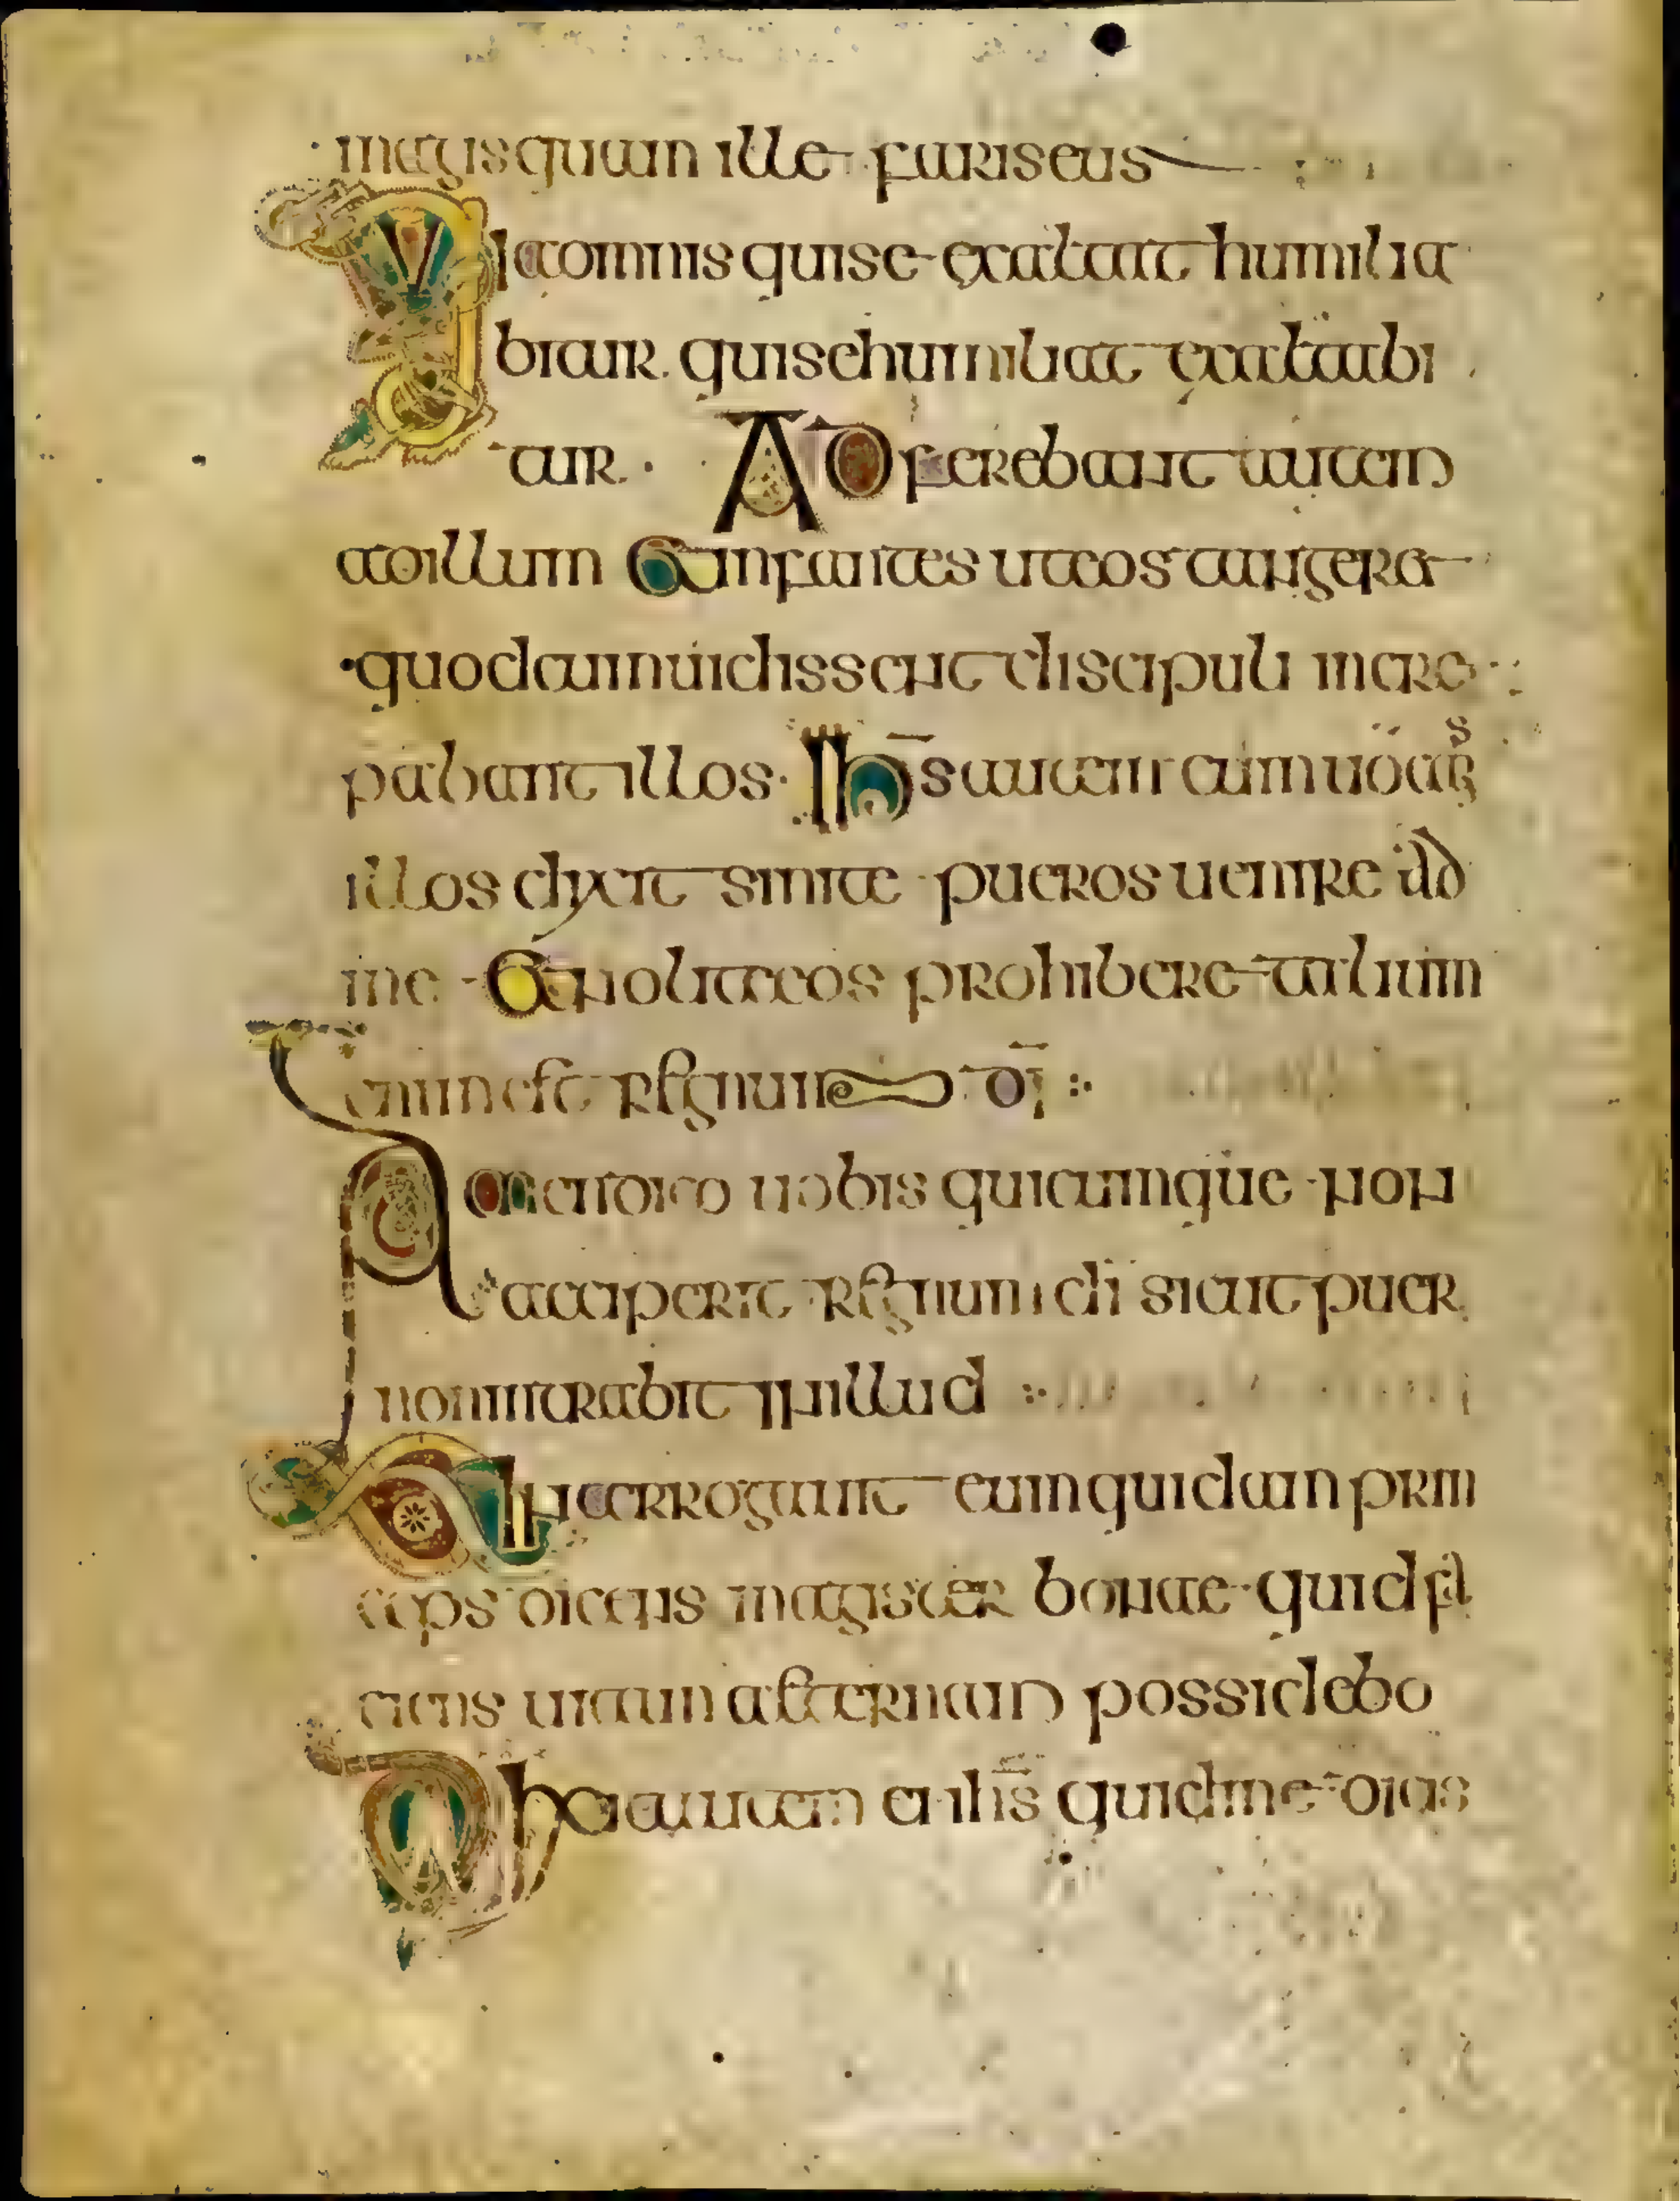 magis quam ille fariseus
Quia omnis qui se exaltat humilia
bitur qui se humiliat exaltabi
tur. Adferebant autem
ad illum et infantes ut eos tangeret
quod cum uidissent discipuli incre
pabant illos. Ihs autem cum uocas
illos dixit sinite pueros uenire ad
me et nolite eos prohibere talium
enim est regnum di
Amen dico uobis quicumque non
acciperit regnum di sicut puer
non intrabit in illud
Interrogauit eum quidam prin
ceps dicens magister bone quid fa
ciens uitam aeternam possidebo
autem ei ihs quid me dicis